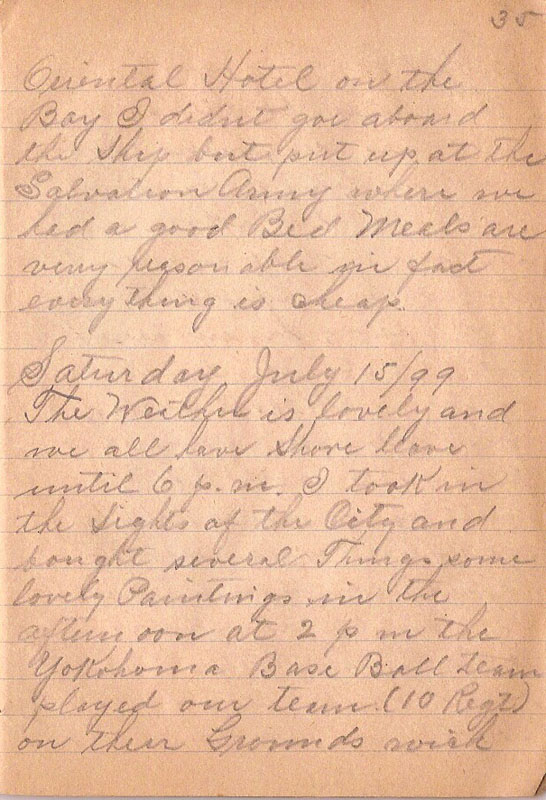 35
Oriental Hotel on the
Bay I didnt goe aboard
the Ship but put up at the
Salvation Army where we
had a good Bed Meals are
verry reasonable in fact
everything is cheap.
Saturday July 15/99
The Weither is lovely and
we all have Shore leave
until 6 p.m. I took in
the Sights of the City and
bought several Things some
lovely Paintings in the
afternoon at 2 p m the
Yokohoma Base Ball team
played our team (10 Regt)
on their Grounds wich